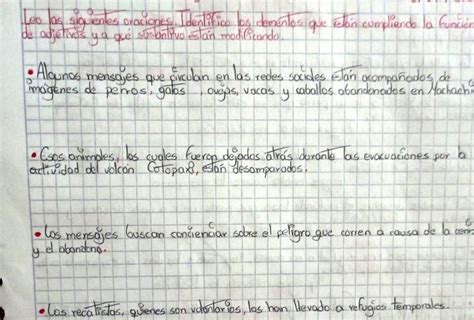 Leo las siguientes oraciones. Identifico los elementos que están cumpliendo la función
de adjetivos y a qué sustantivo están modificando.
• Algunos mensajes que circulan en las redes sociales están acompañados de
imágenes de perros, gatos, ovejas, vacas y caballos abandonados en Machachi
• Esos animales, los cuales fueron dejados atrás durante las evacuaciones por la
actividad del volcán Cotopaxi, están desamparados.
• Los mensajes buscan concienciar sobre el peligro que corren a causa de la
y el abandono.
• Los rescatistas, quienes son voluntarios, los han llevado a refugios temporales.